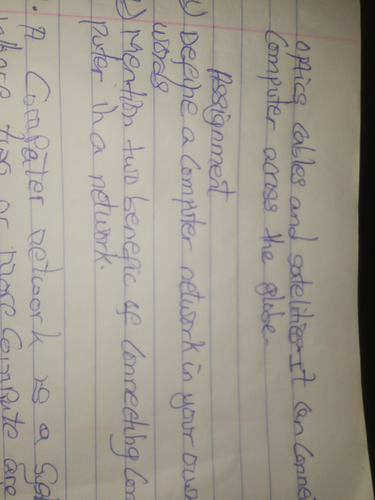 optics cables and satellites. It can connec
Computer across the globe.
Assignment
) Define a computer network in your own
words
) Mention two benefic of Connecting Com
puter in a network.
. A Computer network is a
where two or more Compute are